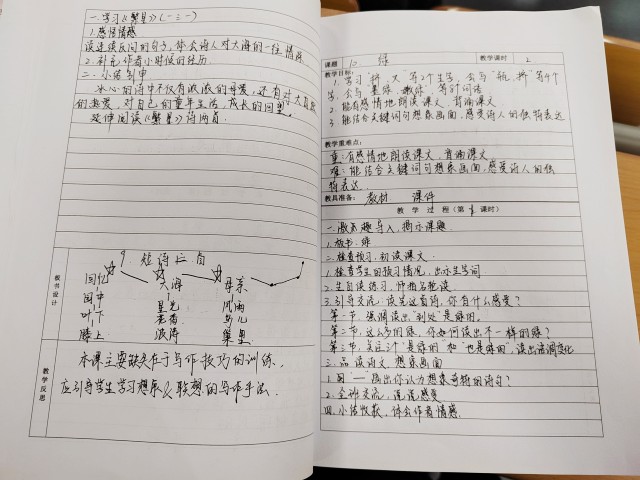 一.学习《繁星》(一三一)
1.感悟情感
读连续反问的句子,体会诗人对大海的一往情深
2.补充作者小时候的经历
二.小结
冰心的诗中不仅有浓浓的母爱,还有对大自然
的热爱,对自己的童年生活、成长的回望。
延伸阅读《繁星》诗两首.
板书设计
9.短诗三首
回忆 大海 母亲
园中 星光 风雨
叶下 花香 鸟儿
膝上 涛 巢里
教学反思
本课主要缺失在于写作技巧的训练,
应引导学生学习想象及联想的写作手法.
课题 绿 教学课时 2
教学目标:
1.学习 等2个生字,会写 等9个
字,会写 等 词语
2.能有感情地朗读课文,背诵课文
3.能结合关键词句想象画面,感受诗人的独特表达
教学重难点:
重:有感情地朗读课文,背诵课文
难:能结合关键词句想象画面,感受诗人的独
特表达
教具准备: 教材 课件
教 学 过 程(第1课时)
一.激趣导入,揭示课题
1.板书:绿
二.检查预习,初读课文
1.检查学生的预习情况,出示生字词
2.生自读练习,师指名抢读
3.引导交流:读完这首诗,你有什么感受?
第一节,强调读出"到处"是绿的.
第二节,这么多的绿,你如何读出不一样的绿?
第三节,关注3个"是绿的"和"也是绿的",读出语调变化
三.品读诗文,想象画面
1.用"—"画出你认为想象奇特的诗句?
2.全班交流,说说感受
四.小结收获,体会作者情感.